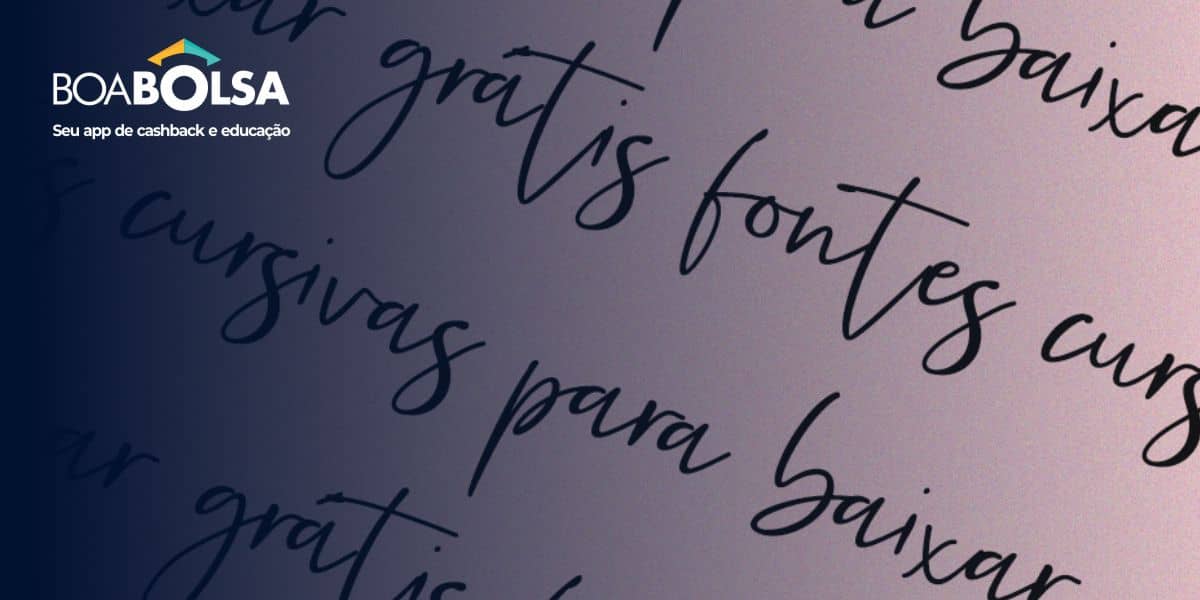 BOABOLSA
Seu app de cashback e educação
a baixa
xar gratis fontes curs
s cursivas para baixar
ar gratis